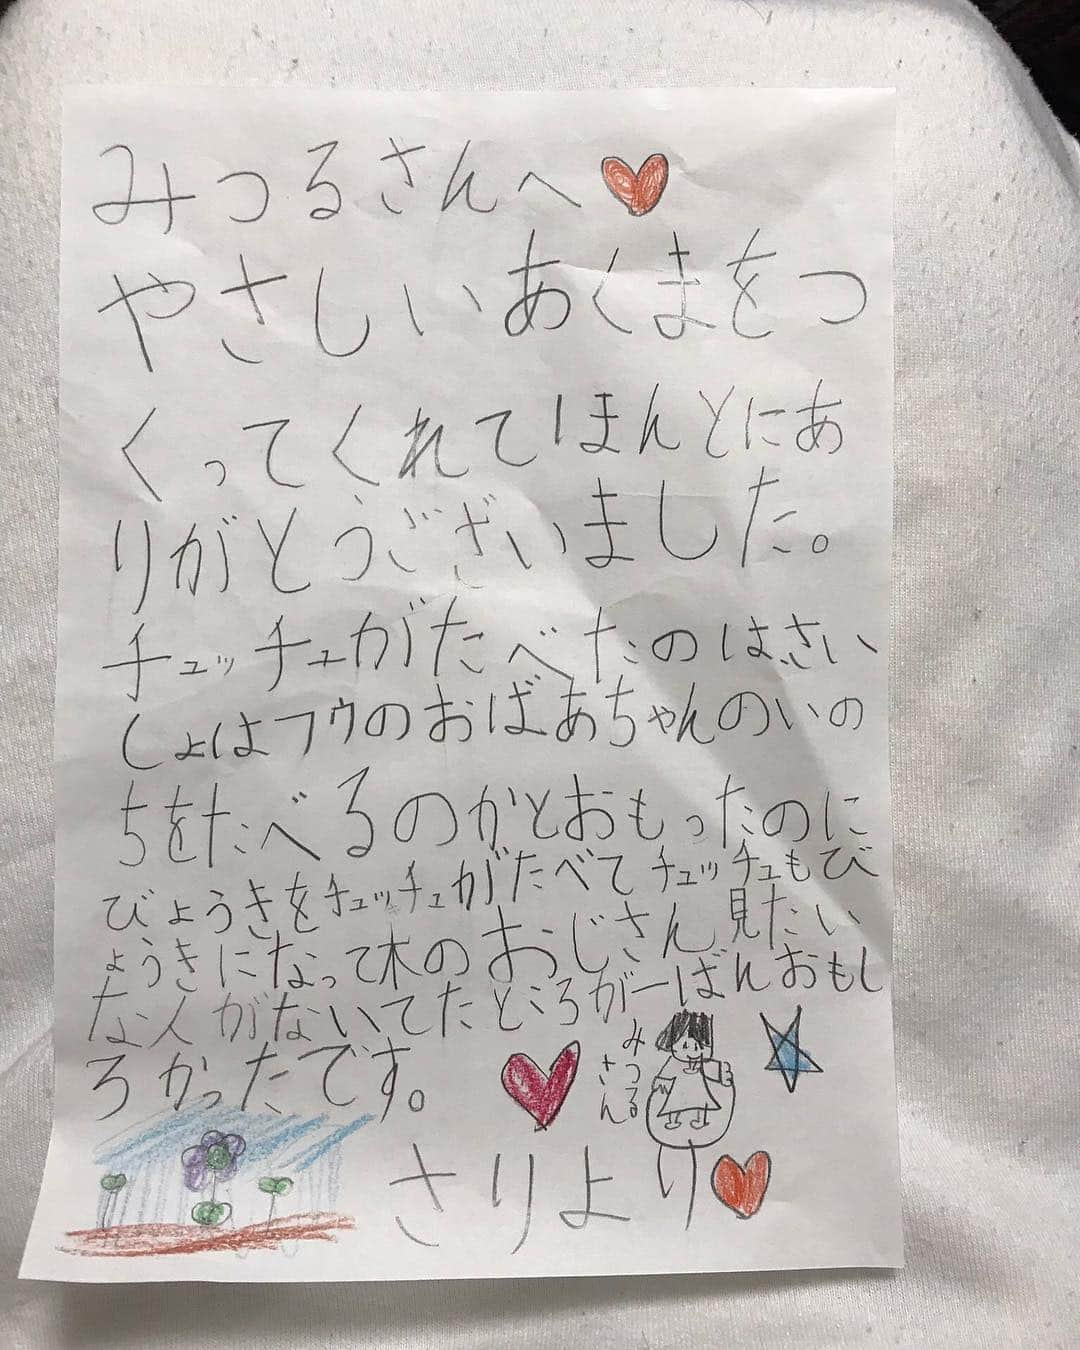 みつるさんへ
やさしいあくまをつ
くってくれてほんとにあ
りがとうございました。
チュッチュがたべたのは、さい
しょはフウのおばあちゃんのいの
ちをたべるのかとおもったのに
びょうきをチュッチュがたべてチュッチュもび
ょうきになって木のおじさん見たい
な人がないてたところが一ばんおもし
ろかったです。
みつる
さん
さりより